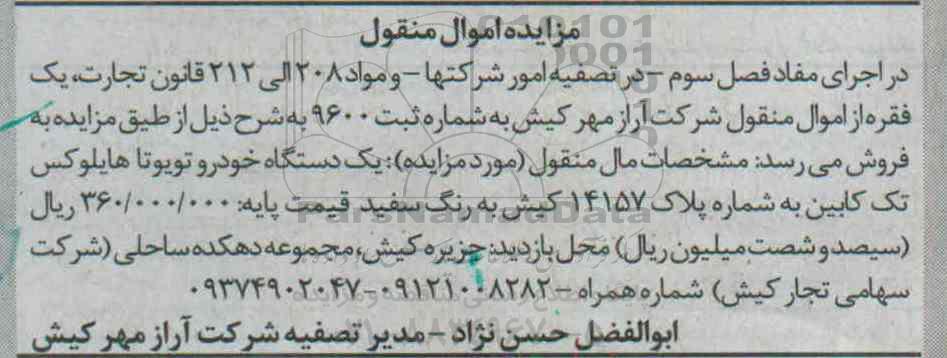 مزایده اموال منقول
در اجرای مفاد فصل سوم – در تصفیه امور شرکتها – و مواد ۲۰۸ الی ۲۱۲ قانون تجارت، یک
فقره از اموال منقول شرکت آراز مهر کیش به شماره ثبت ۹۶۰۰ به شرح ذیل از طیق مزایده به
فروش می رسد: مشخصات مال منقول (مورد مزایده): یک دستگاه خودرو تویوتا هایلوکس
تک کابین به شماره پلاک ۱۴۱۵۷ کیش به رنگ سفید قیمت پایه: ۳۶۰/۰۰۰/۰۰۰ ریال
(سیصد و شصت میلیون ریال) محل بازدید: جزیره کیش، مجموعه دهکده ساحلی (شرکت
سهامی تجار کیش) شماره همراه – ۰۹۱۲۱۰۰۸۲۸۲-۰۹۳۷۴۹۰۲۰۴۷
ابوالفضل حسن نژاد – مدیر تصفیه شرکت آراز مهر کیش